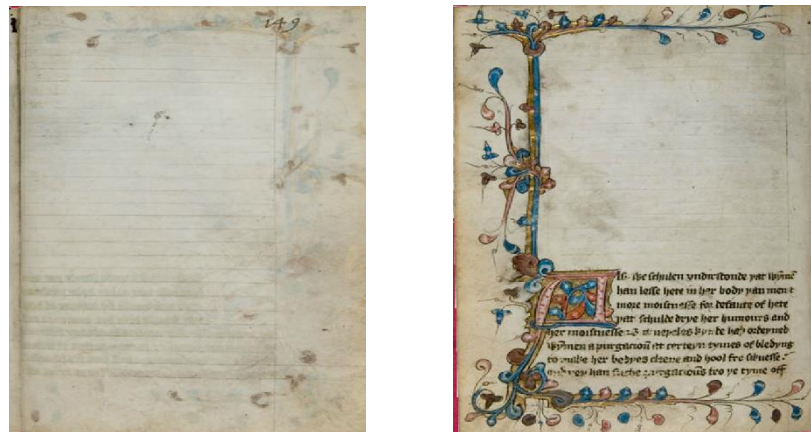 149
AS we schulen vndirstonde yat wȳmē
han lesse hete in her body yan men &
more moistnesse for defaute of hete
yat schulde drye her humours and
her moistnesse & neyeles kynde haþ ordeyned
wȳmen a purgacioū at certeyn tymes of bledyng
to make her bodyes clene and hool fro sikenesse
and yey han suche purgacioūs fro ye tyme off